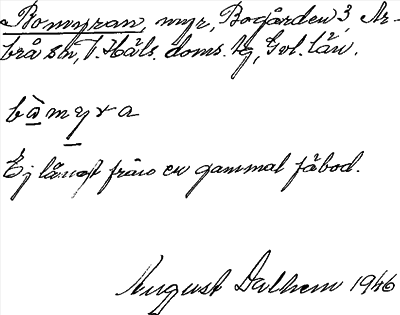 Bomyran, myr, Bogården 3, Ar-
brå sn, V. Häls. doms. hg, Gvl. län.
bòmyra
Ej långt från en gammal fäbod.
August Dalhem 1946